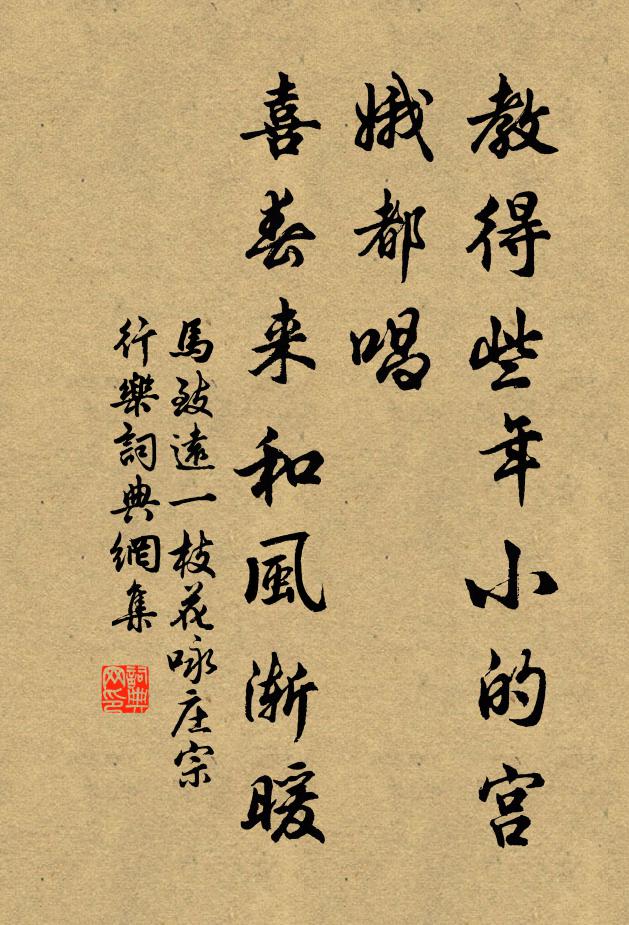 教得些年小的宫
娥都唱
喜春来和風渐暖
馬致遠一枝花咏庄宗
行樂詞典網集
詞典
网印